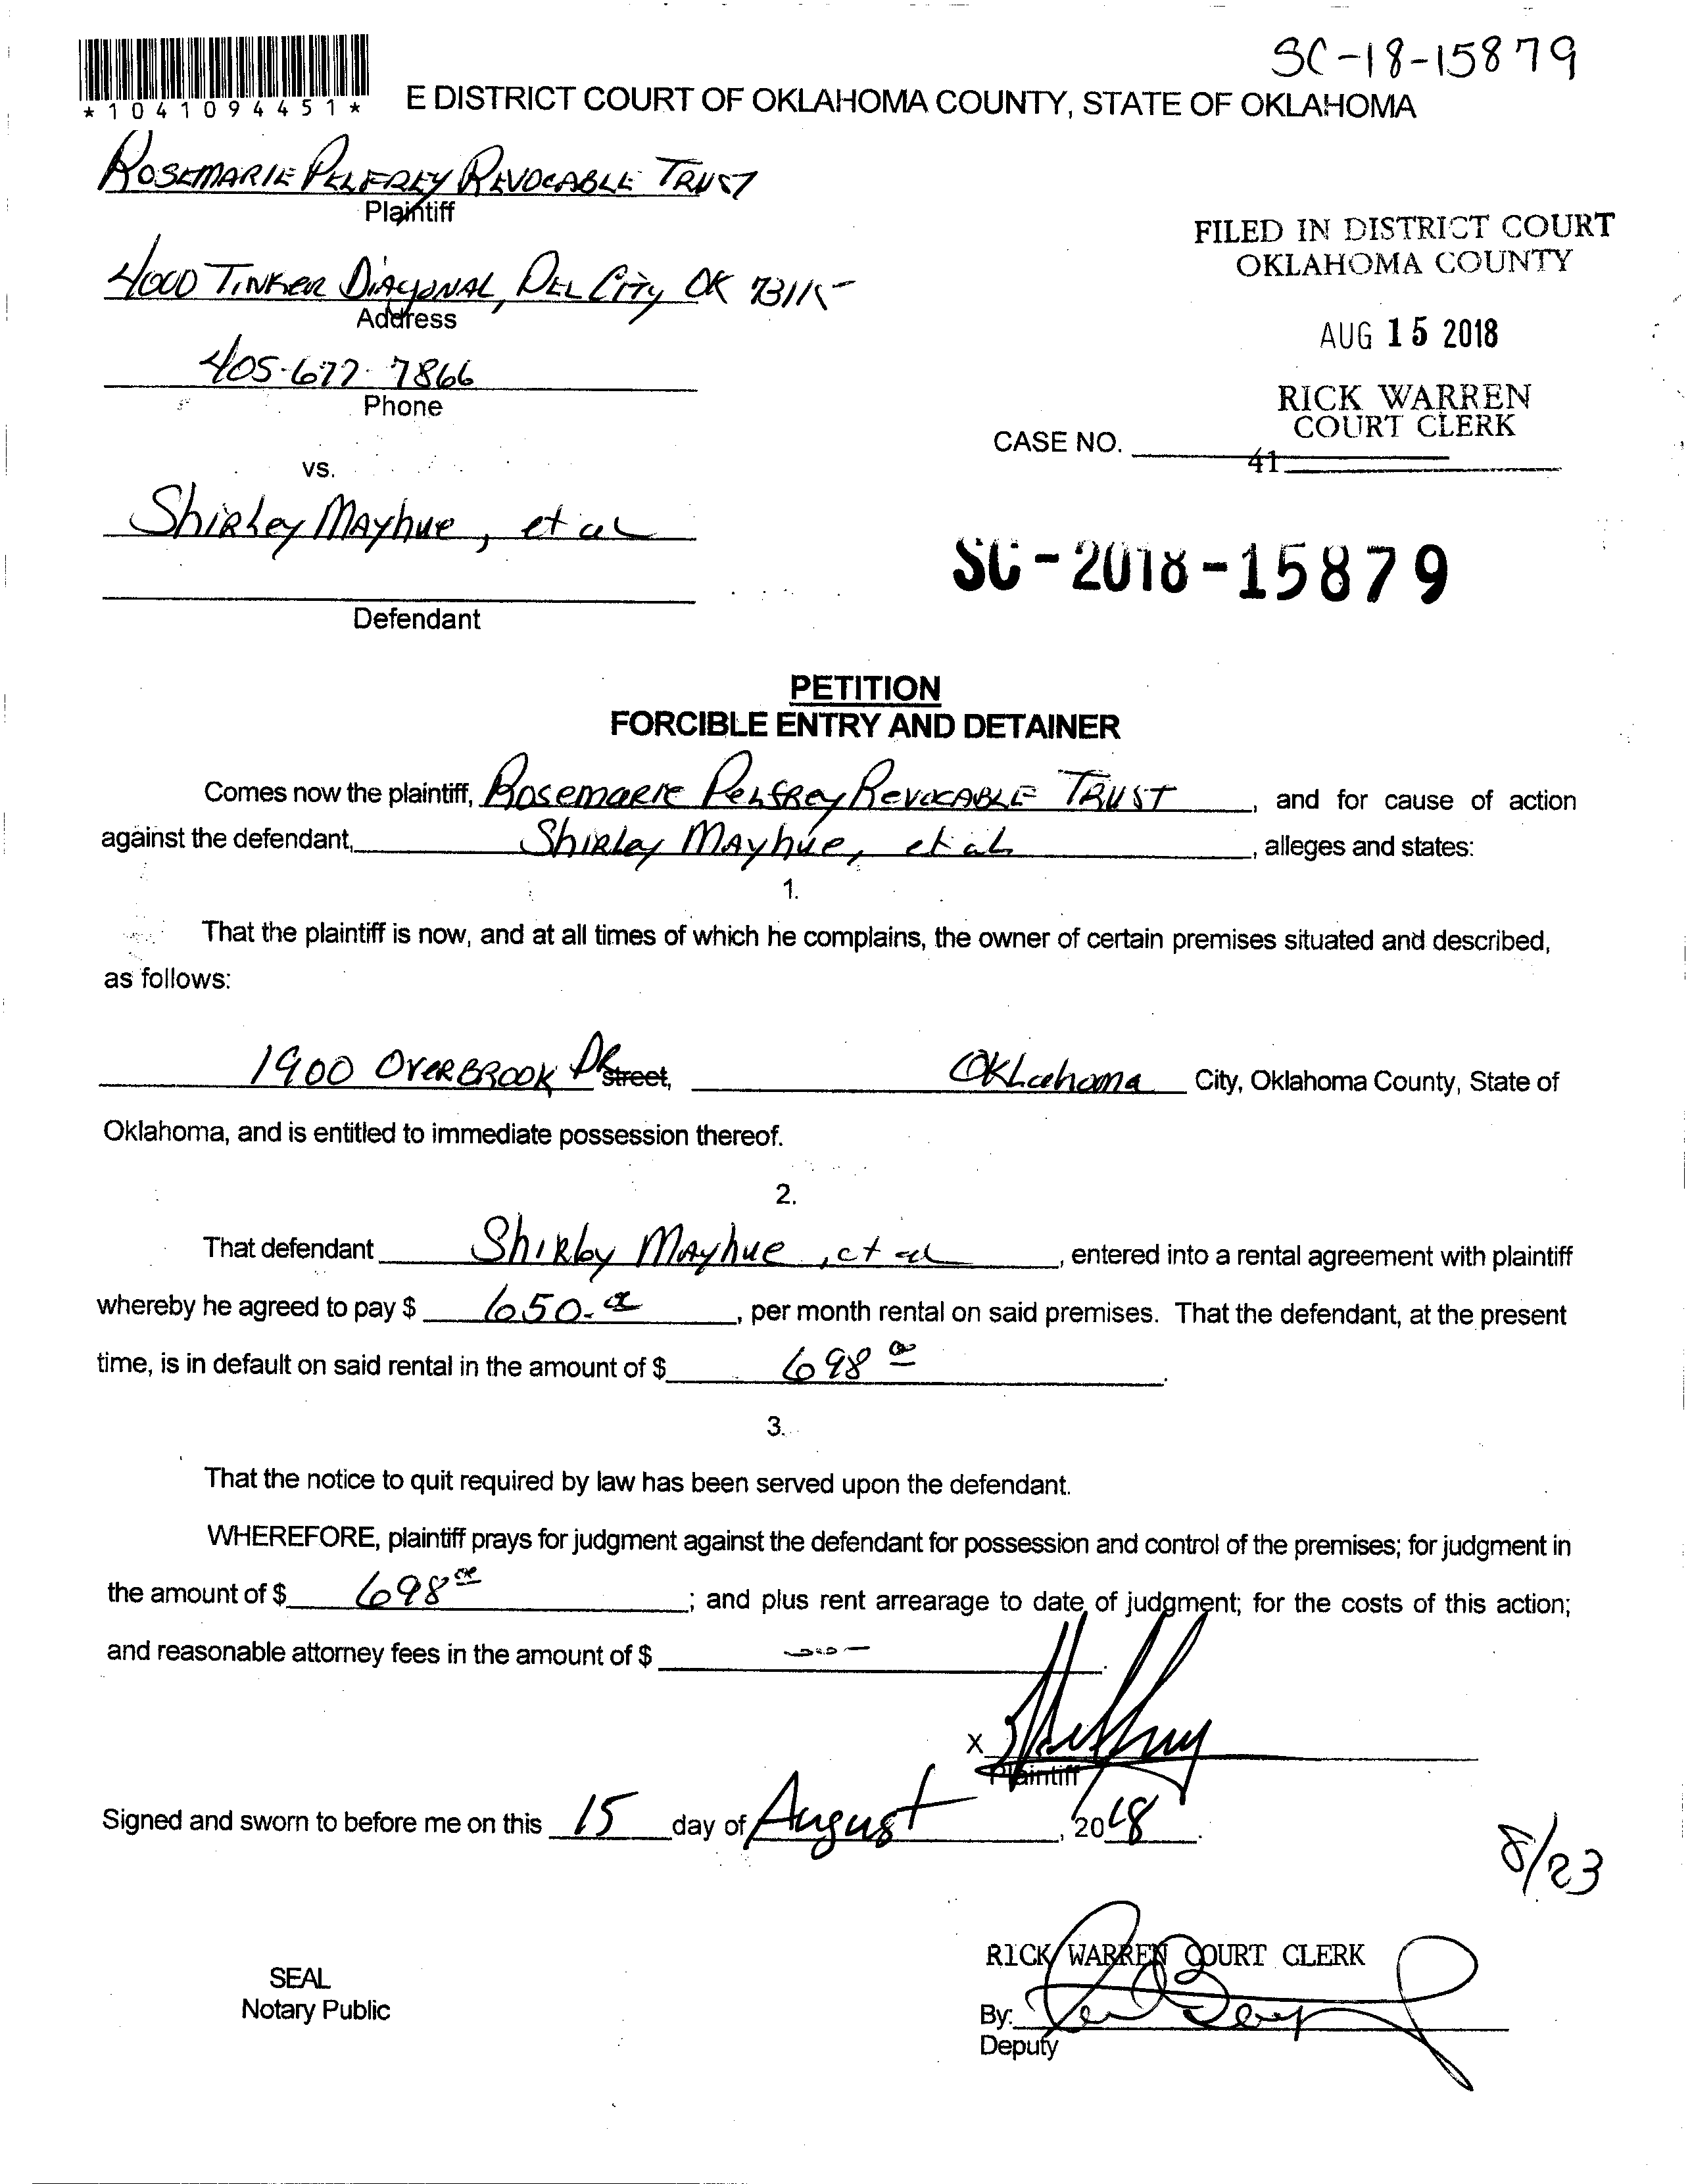 SC-18-15879
*1041094451*
E DISTRICT COURT OF OKLAHOMA COUNTY, STATE OF OKLAHOMA
ROSEMARIE PELFREY REVOCABLE TRUST
Plaintiff
4000 TINKER DIAGONAL, DEL CITY OK 73115
Address
405-677-7866
Phone
FILED IN DISTRICT COURT
OKLAHOMA COUNTY
AUG 15 2018
RICK WARREN
COURT CLERK
CASE NO.
41
vs.
Shirley Mayhue, et al
SC-2018-15879
Defendant
PETITION
FORCIBLE ENTRY AND DETAINER
Comes now the plaintiff, Rosemarie Pelfrey Revocable Trust, and for cause of action
against the defendant, Shirley Mayhue, et al, alleges and states:
1.
That the plaintiff is now, and at all times of which he complains, the owner of certain premises situated and described,
as follows:
1900 Overbrook DR Street, Oklahoma City, Oklahoma County, State of
Oklahoma, and is entitled to immediate possession thereof.
2.
That defendant Shirley Mayhue, et al, entered into a rental agreement with plaintiff
whereby he agreed to pay $ 650.00, per month rental on said premises. That the defendant, at the present
time, is in default on said rental in the amount of $ 698 00.
3.
That the notice to quit required by law has been served upon the defendant.
WHEREFORE, plaintiff prays for judgment against the defendant for possession and control of the premises; for judgment in
the amount of $ 698 00; and plus rent arrearage to date of judgment; for the costs of this action;
and reasonable attorney fees in the amount of $
X
Plaintiff
Signed and sworn to before me on this 15 day of August, 2018.
8/23
RICK WARREN COURT CLERK
SEAL
Notary Public
By:
Deputy